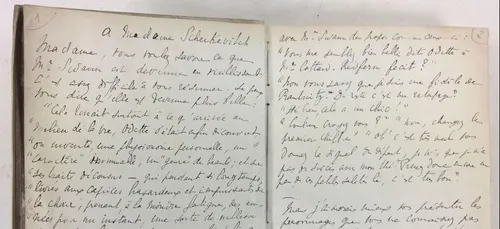 A Madame Scheikévitch
Madame, vous voulez savoir ce que
Me Swann est devenue en vieillissant.
C'est assez difficile à vous résumer. Je peux
vous dire qu'elle est devenue plus belle :
"Cela tenait surtout à ce qu'arrivée au
"milieu de la vie, Odette s'était enfin découvert
"ou inventé, une physionomie personnelle, un
"caractère" immuable, un "genre de beauté, et sur
"ses traits décousus — qui pendant si longtemps,
"livrés aux caprices hasardeux et impuissants de
"la chair, prenant à la moindre fatigue, des an-
"nées pour un instant, une sorte de vieillesse
avec Me Swann des propos comme ceux-ci :
"Vous me semblez bien belle dit Odette à
Me Cottard. Redfern fecit ?"
"Non vous savez que je suis une fidèle de
Raudnitz. Du reste c'est un retapage"
"Hé bien, cela a un chic !"
"Combien croyez vous ?" "Non, changez le
premier chiffre" "Oh ! c'est très mal vous
donnez le signal du départ, je vois que je n'ai
pas de succès avec mon thé" "Prenez donc encore un
peu de ces petites saletés là, c'est très bon".
Mais j'aimerais mieux vous présenter les
personnages que vous ne connaissez pas